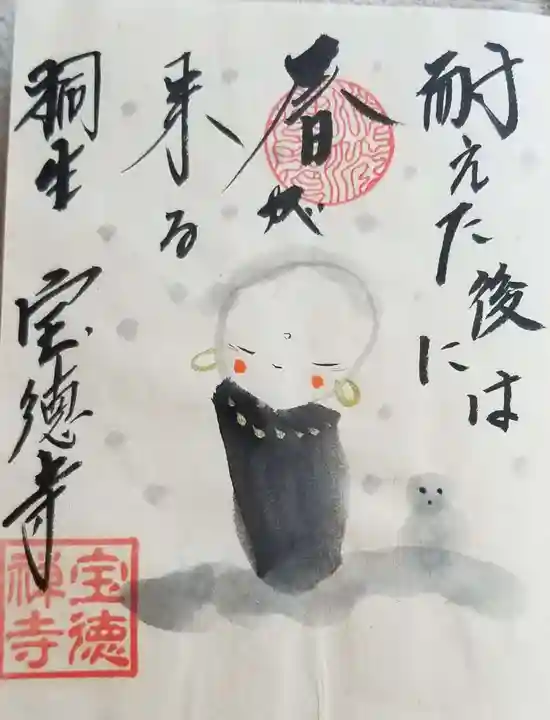 耐えた後には
春が
来る
桐生 宝徳寺
宝徳
禅寺